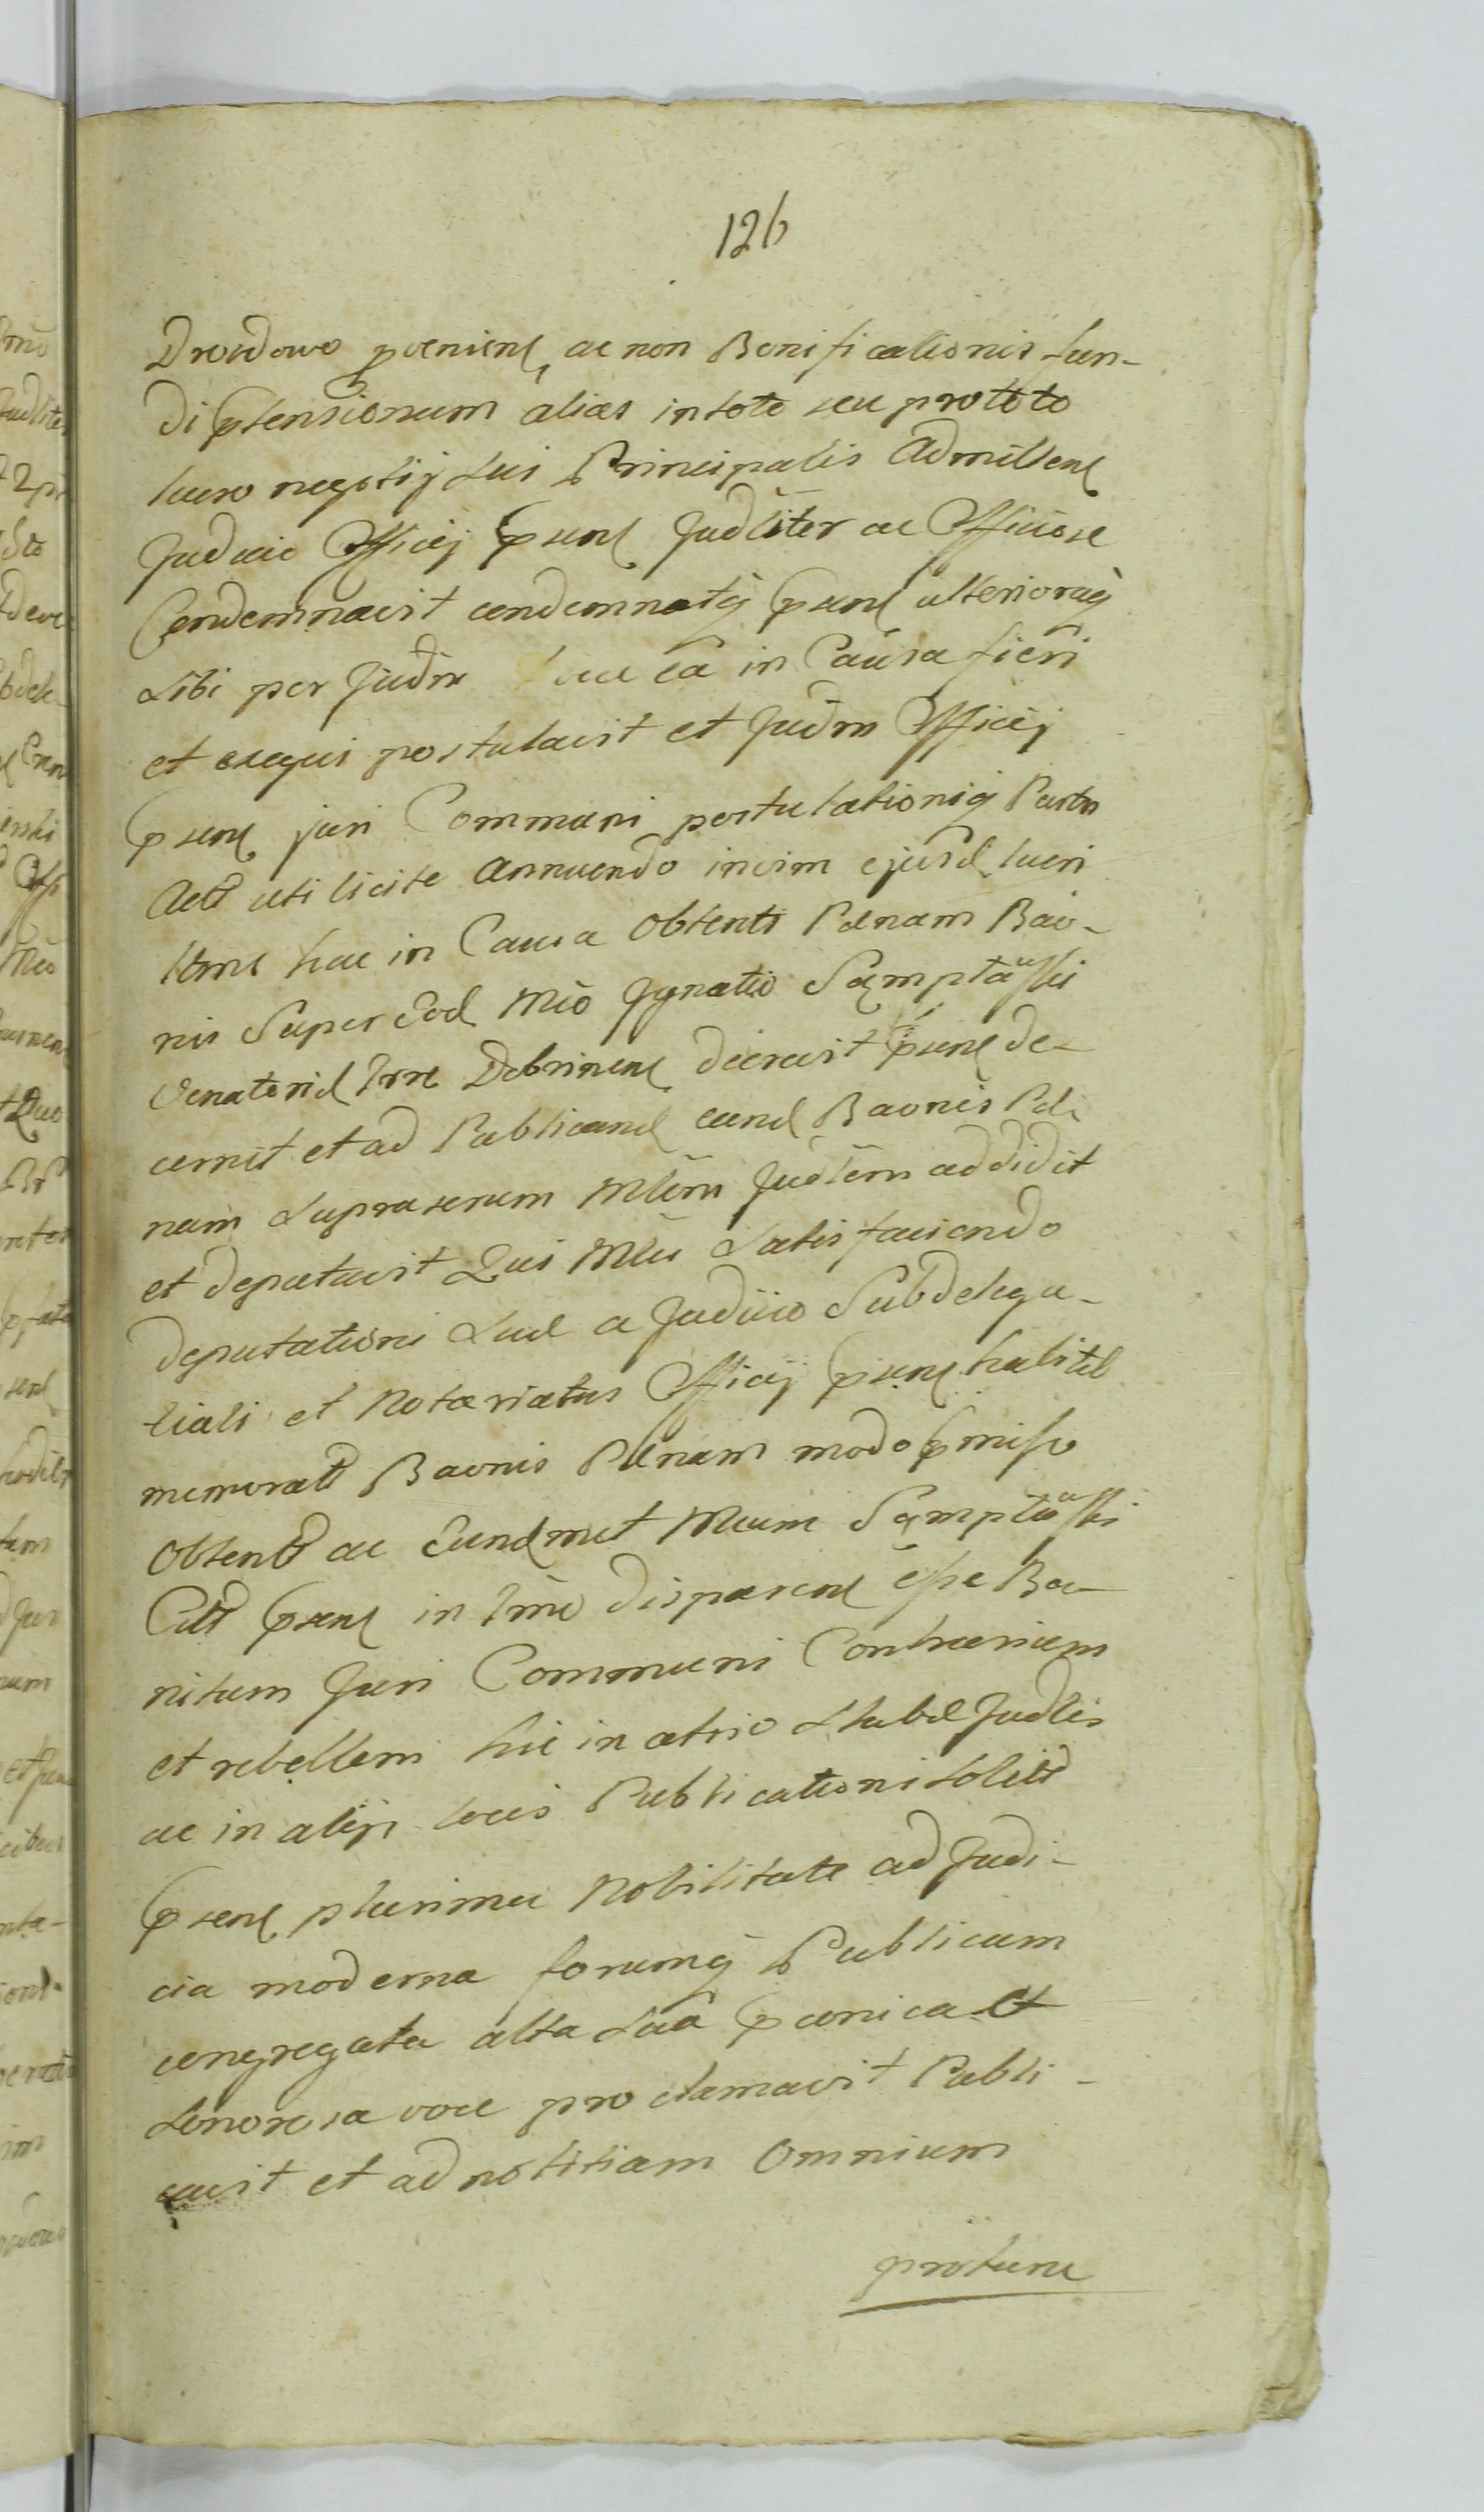 126
Drozdowo provenien, ac non Bonificationis fun-
di ptensionum alias in toto seu pro toto
lucro negotij sui Principalis Admitten
Judicio Officij psen Judliter ac Officiose
Condemnavit condemnatq psen ulterioraq
sibi per Judm in ea in Causa fieri
et exequi postulavit et Judm Officij
psen juri Communi postulationiq Partis
Act uti licite Annuendo in vim ejusd lucri
hac in Causa Obtenti Poenam Bao-
nis Super Eod Mco Ignatio Sąmpławski
Venatorid Trre Dobrinen decrevit psen de-
cernit et ad Publicand eand Baonis Poe
nam supra serum Mlem Judlem addidit
et deputavit Qui Mlis Satisfaciendo
deputationi Sue a Judicio Subdelega-
tiali et Notariatus Officij psen habite
memorat Baonis Poenam modo pmisso
Obtent ac Eundmet Mcum Sąmpławski
Citt psen in Tmno disparen esse Ba-
nitum Juri Communi Contrarium
et rebellem hic in atrio Stubae Judlis
ac in alijs locis Publicationi solitis
psen plurima Nobilitate ad Judi-
cia moderna forumq Publicum
congregata alta sua pconica et
sonorosa voce proclamavit Publi-
cavit et ad notitiam Omnium